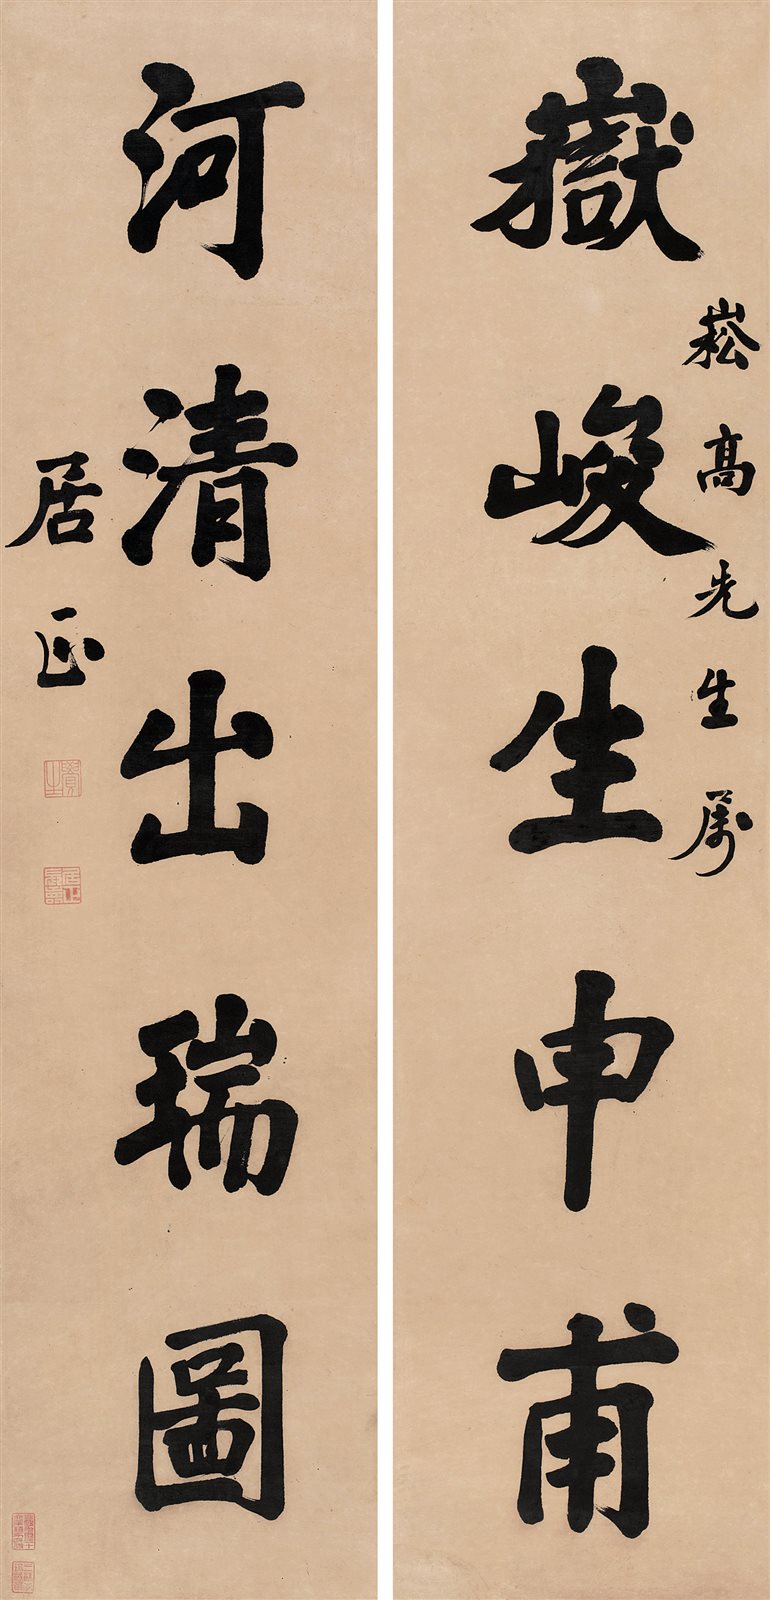 嶽峻生申甫
崧高先生属
河清出瑞圖
居正